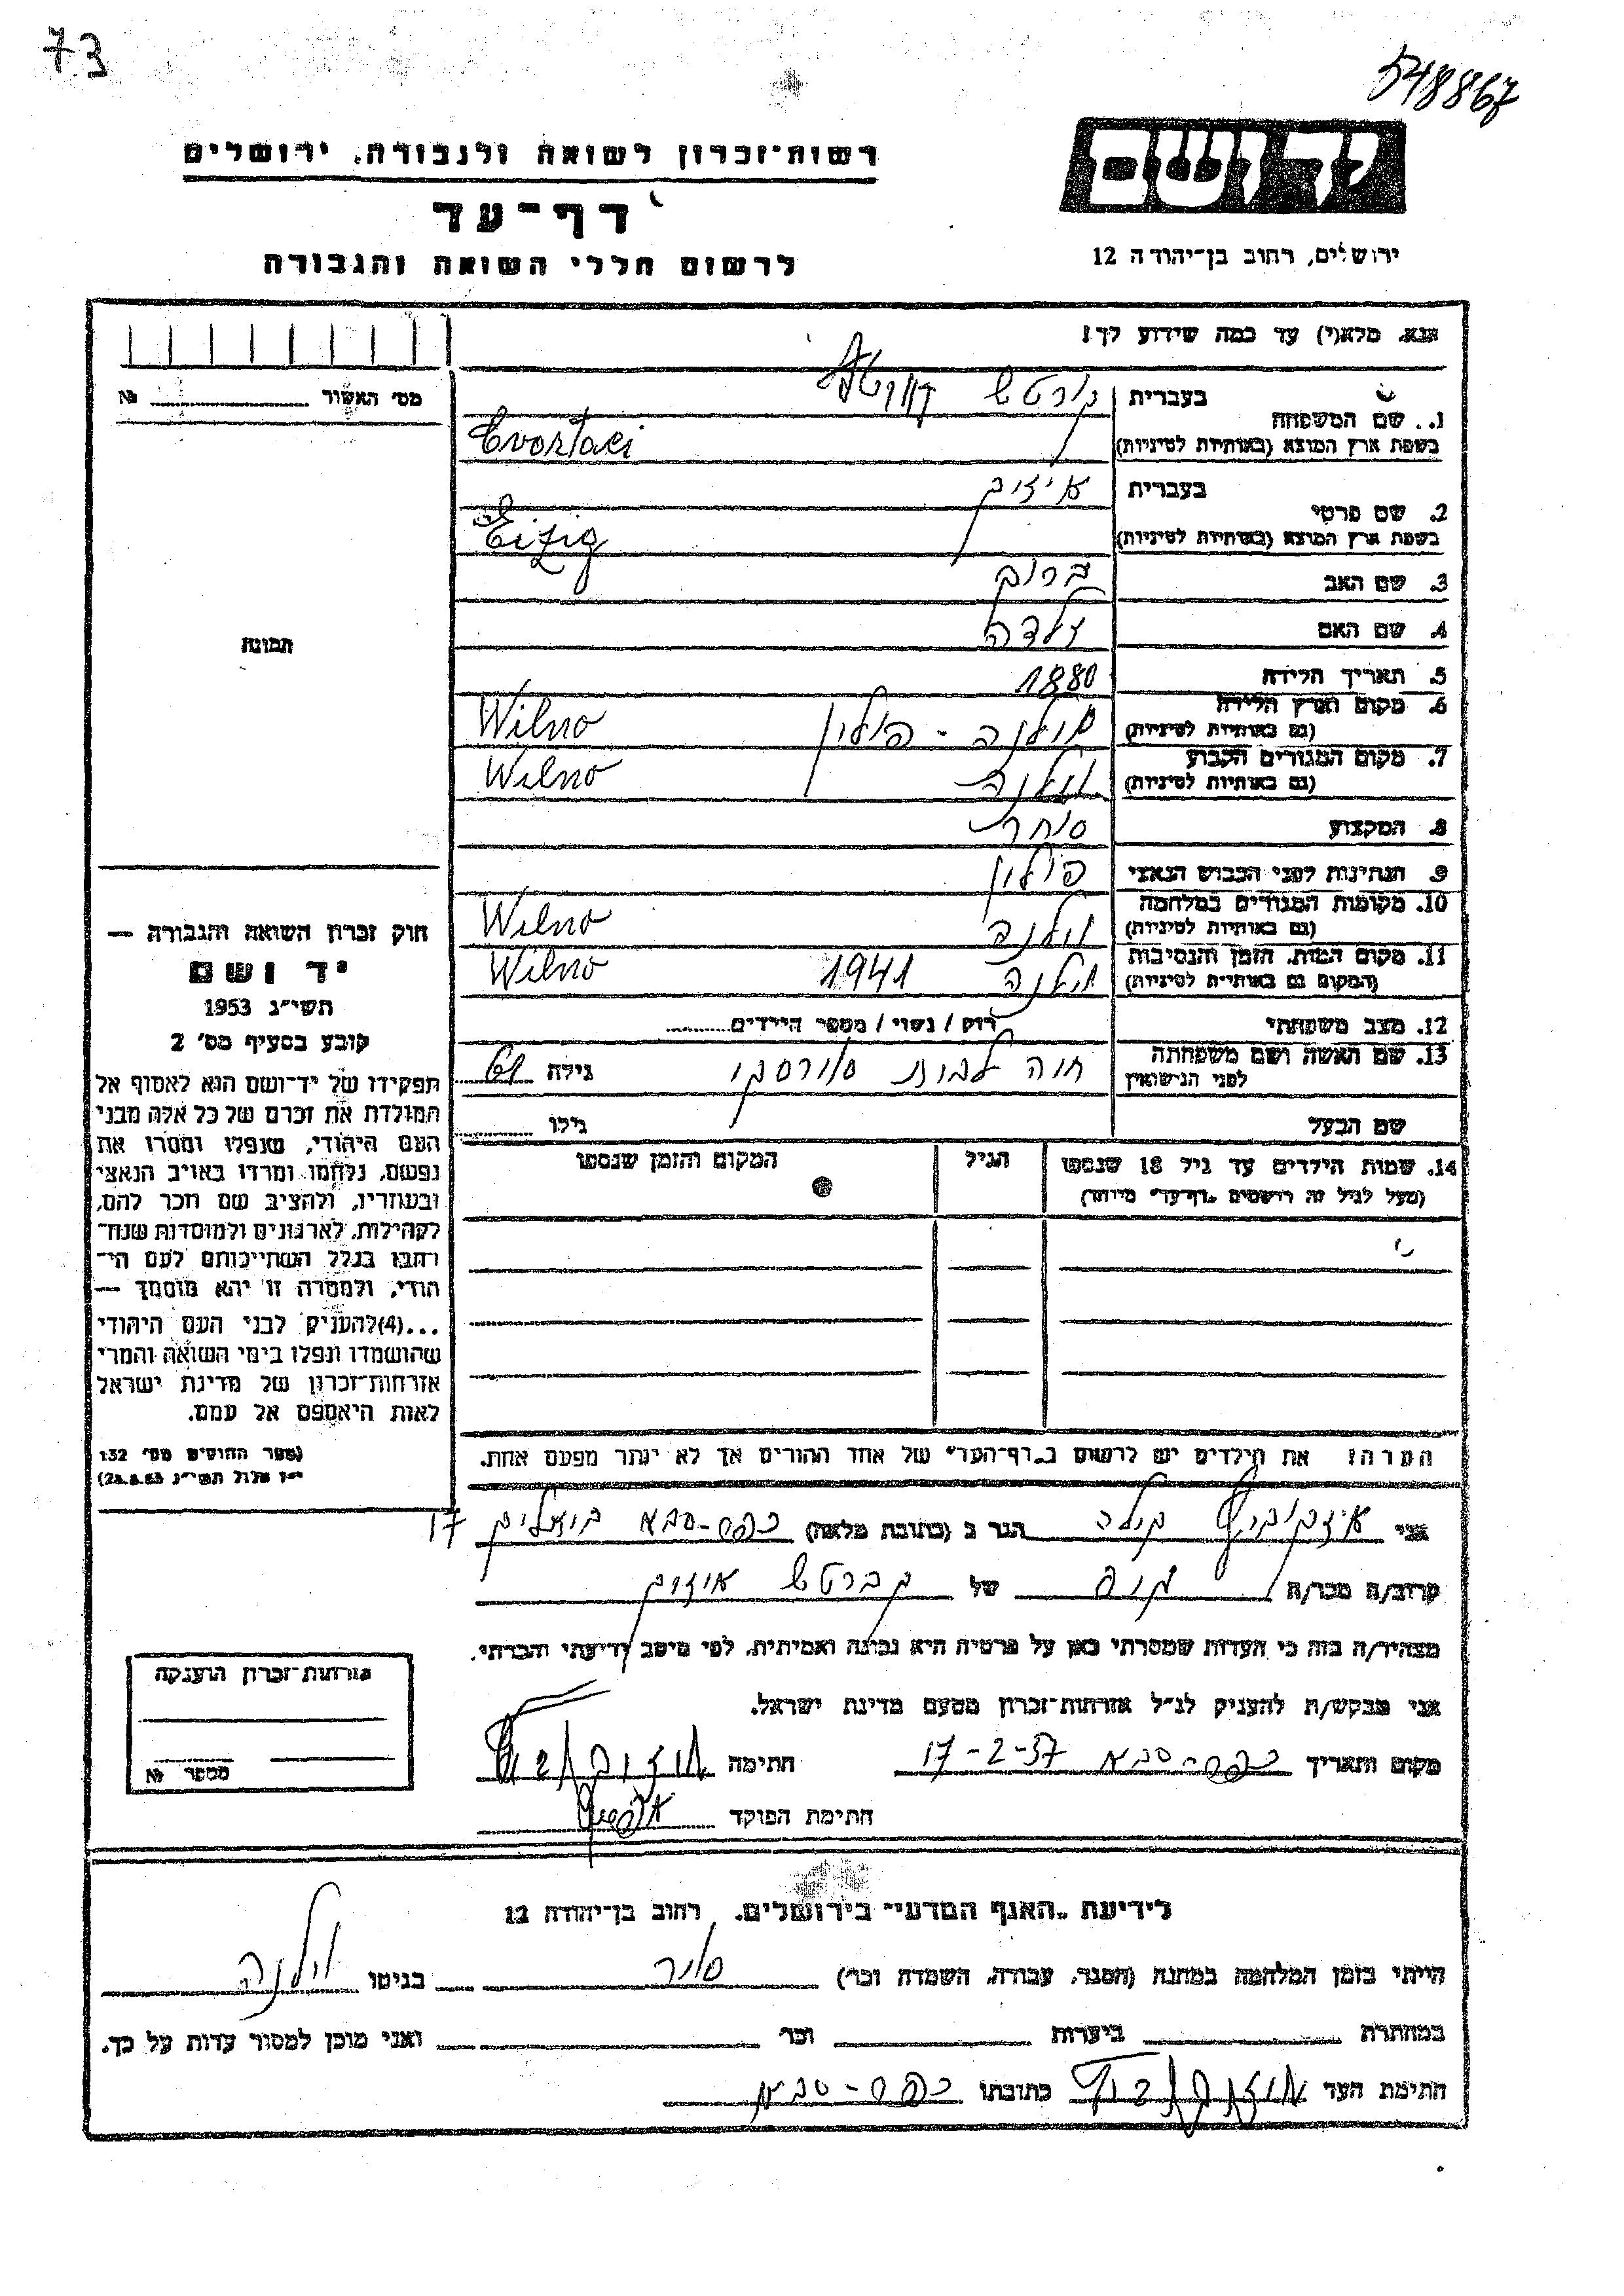 73
548867
יד ושם
רשות־זכרון לשואה ולגבורה, ירושלים
דף־עד
לרשום חללי השואה והגבורה
ירושלים, רחוב בן־יהודה 12
אנא, מלא(י) עד כמה שידוע לך!
מס׳ האשור № 
1. שם המשפחה
בעברית
בשפת ארץ המוצא (באותיות לטיניות)
2. שם פרטי
בעברית
בשפת ארץ המוצא (באותיות לטיניות) Eizig
3. שם האב
4. שם האם זלדה
5. תאריך הלידה 1880
6. מקום וארץ הלידה
(גם באותיות לטיניות) וילנה - פולין Wilno
7. מקום המגורים הקבוע
(גם באותיות לטיניות) וילנה Wilno
8. המקצוע סוחר
9. הנתינות לפני הכבוש הנאצי פולין
10. מקומות המגורים במלחמה
(גם באותיות לטיניות) וילנה Wilno
11. מקום המות, הזמן והנסיבות
(המקום גם באותיות לטיניות) וילנה 1941 Wilno
12. מצב משפחתי רווק / נשוי / מספר הילדים
13. שם האשה ושם משפחתה
לפני הנישואין חוה לבית גילה 61
שם הבעל גילו
14. שמות הילדים עד גיל 18 שנספו הגיל המקום והזמן שנספו
(מעל לגיל זה רושמים „דף־עד״ מיוחד)
תמונה
חוק זכרון השואה והגבורה —
יד ושם
תשי״ג 1953
קובע בסעיף מס׳ 2
תפקידו של יד־ושם הוא לאסוף אל
המולדת את זכרם של כל אלה מבני
העם היהודי, שנפלו ומסרו את
נפשם, נלחמו ומרדו באויב הנאצי
ובעוזריו, ולהציב שם וזכר להם,
לקהילות, לארגונים ולמוסדות שנח־
רבו בגלל השתייכותם לעם הי־
הודי, ולמטרה זו יהא מוסמך —
...(4)להעניק לבני העם היהודי
שהושמדו ונפלו בימי השואה והמרי
אזרחות־זכרון של מדינת ישראל
לאות היאספם אל עמם.
(ספר החוקים מס׳ 132
י״ז אלול תשי״ג 28.8.53)
הערה! את הילדים יש לרשום ב„דף־העד״ של אחד ההורים אך לא יותר מפעם אחת.
אני הגר ב (כתובת מלאה) כפר-סבא 17
קרוב/ה מכר/ה של
מצהיר/ה בזה כי העדות שמסרתי כאן על פרטיה היא נכונה ואמיתית, לפי מיטב ידיעתי והכרתי.
אני מבקש/ת להעניק לנ״ל אזרחות־זכרון מטעם מדינת ישראל.
מקום ותאריך כפר-סבא 17-2-57 חתימה
חתימת הפוקד
אזרחות־זכרון הוענקה
מספר №
לידיעת „האגף המדעי״ בירושלים, רחוב בן־יהודה 12
הייתי בזמן המלחמה במחנה (הסגר, עבודה, השמדה וכו׳) בגיטו וילנה
במחתרת ביערות וכו׳ ואני מוכן למסור עדות על כך.
חתימת העד כתובתו כפר-סבא